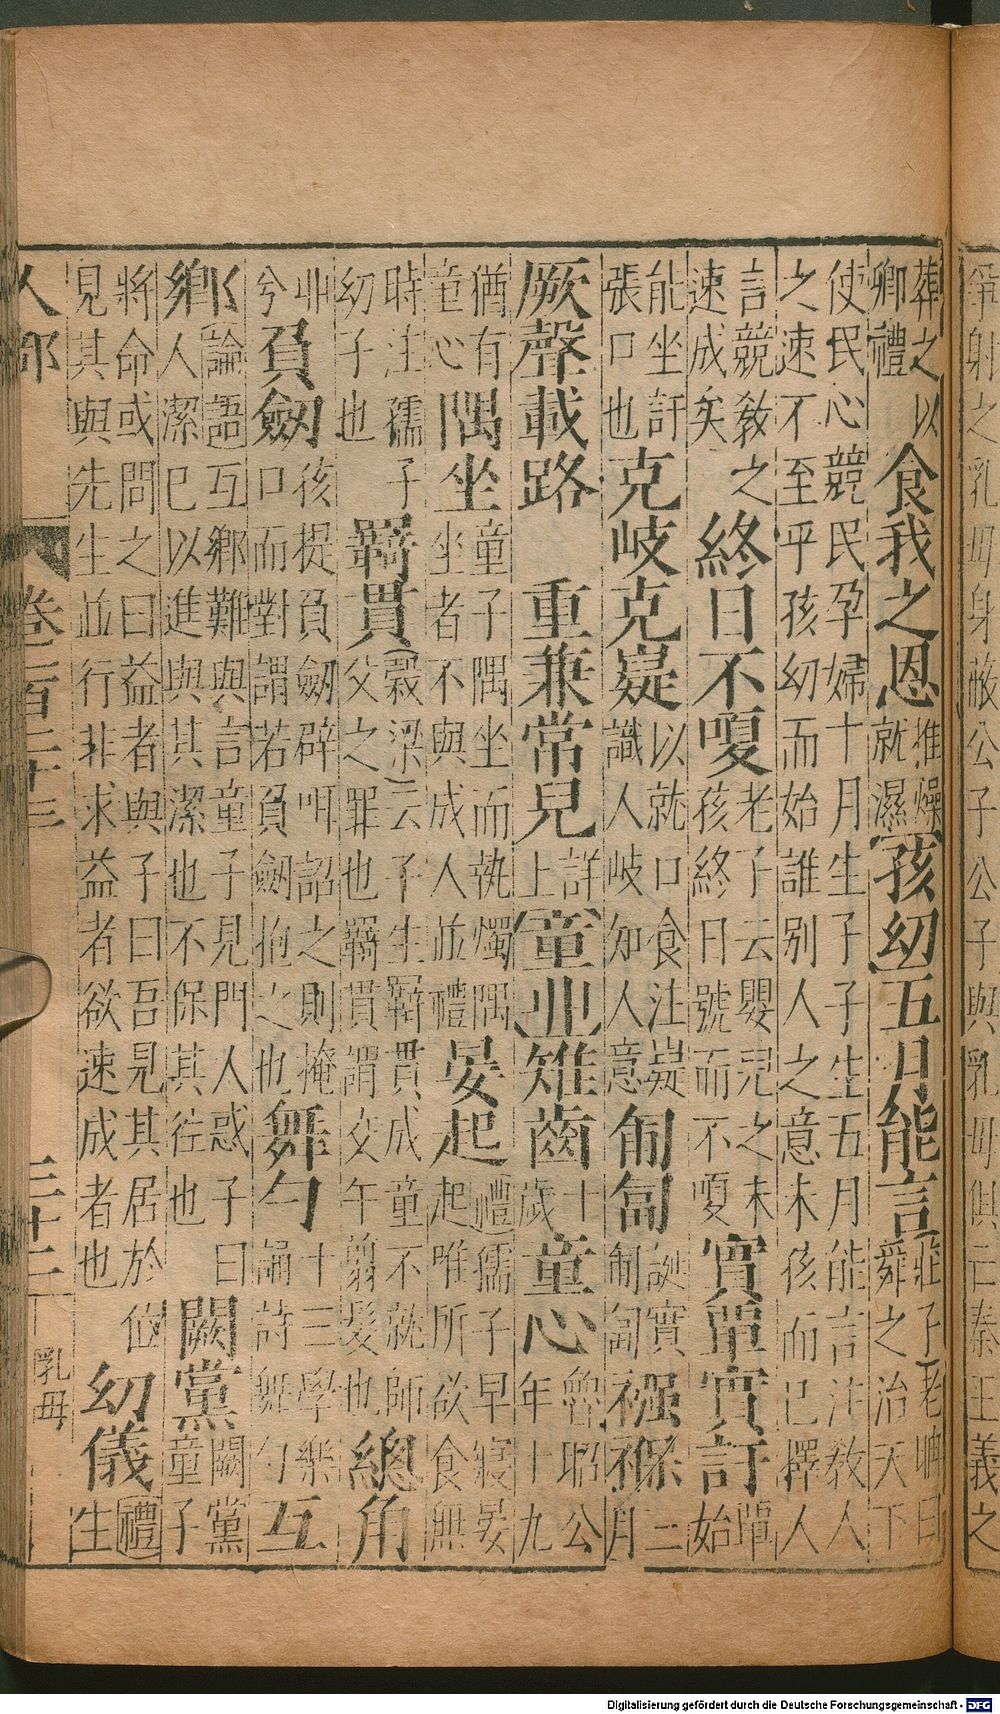 爭射之乳母身蔽公子公子與乳母俱亡秦王義之
葬之以卿禮 食我之恩 推燥就濕 孩幼 五月能言 莊子老聃曰舜之治天下
使民心競民孕婦十月生子子生五月能言注教人
之速不至乎孩幼而始誰別人之意未孩而已擇人
言競教之速成矣 終日不嗄 老子云嬰兒之未孩終日號而不嗄 實覃實訏 始
能坐訏張口也 克岐克嶷 以就口食注嶷識人岐知人意 匍匐 誕實匍匐 襁褓 三月
厥聲載路 重兼常兒 詳上 童丱 雉齒 十歲 童心 魯昭公年十九
猶有童心 隅坐 童子隅坐而執燭隅坐者不與成人並禮 晏起 禮孺子早寢晏起唯所欲食無
時注孺子幼子也 羈貫 穀梁云子生羈貫成童不就師父之罪也羈貫謂交午翦髮也 總角
丱兮 負劒 孩提負劒辟咡詔之則掩口而對謂若負劒抱之也 舞勺 十三學樂誦詩舞勺 互
鄉 論語互鄉難與言童子見門人惑子曰人潔已以進與其潔也不保其往也 闕黨 闕黨童子
將命或問之曰益者與子曰吾見其居於位
見其與先生並行非求益者欲速成者也 幼儀 禮生
人部 卷二百三十三 三十二 乳母
Digitalisierung gefördert durch die Deutsche Forschungsgemeinschaft - DFG